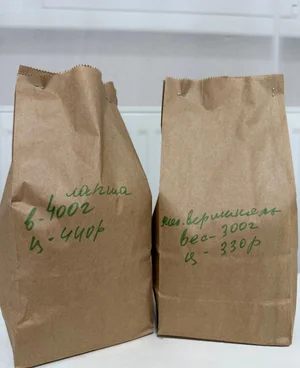 лапша
в-400г
ц-440р
вермишель
вес-300г
ц-330р